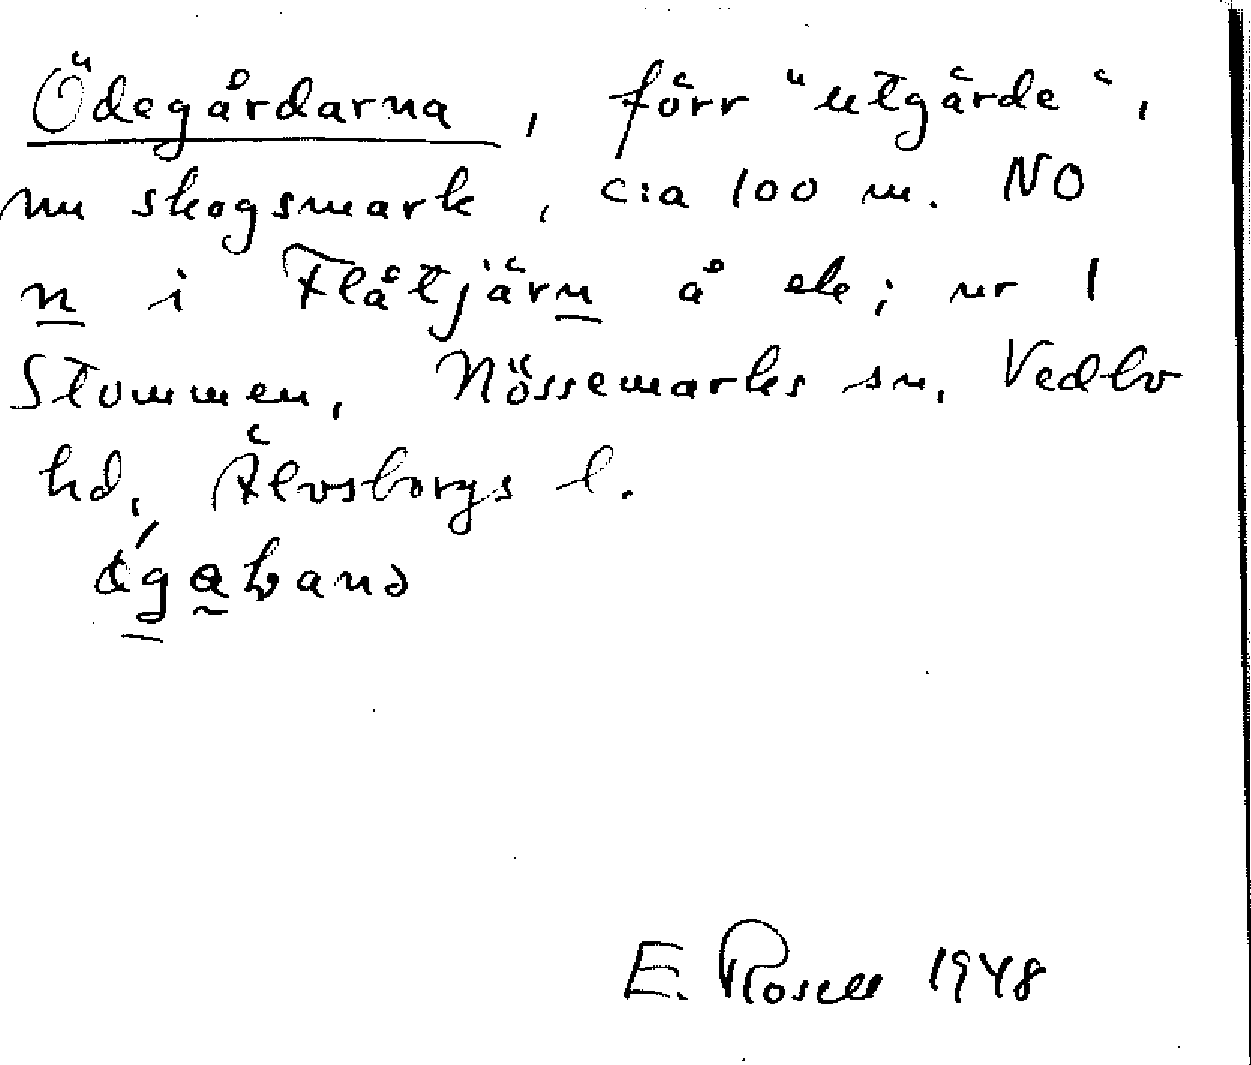 Ödegårdarna, förr "utgärde",
nu skogsmark, c:a 100 m. NO
n i Flåtjärn å ek; nr 1
Stommen, Nössemarks sn, Vedbo
hd, Älvsborgs l.
E. Rosell 1948